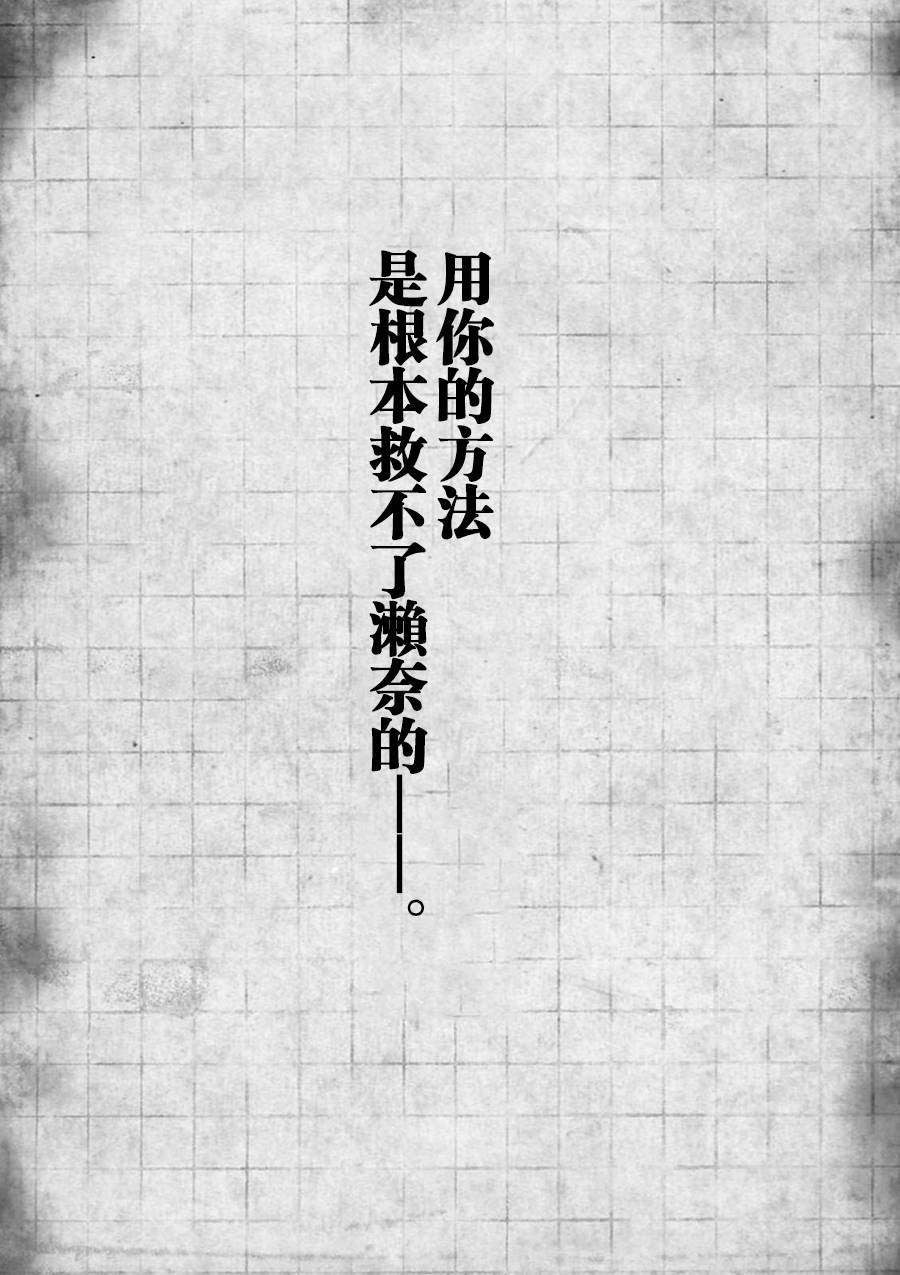 用你的方法
是根本救不了瀨奈的——。